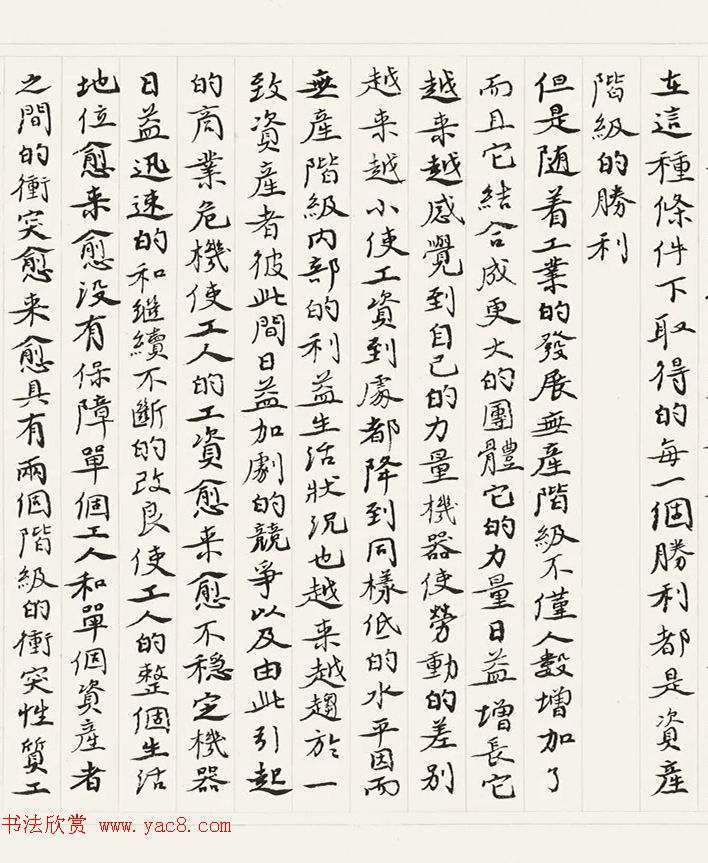 在這種條件下取得的每一個勝利都是資產
階級的勝利
但是随着工業的發展無產階級不僅人數增加了
而且它結合成更大的團體它的力量日益增長它
越来越感覺到自己的力量機器使勞動的差别
越来越小使工資到處都降到同樣低的水平因而
無產階級内部的利益生活狀況也越来越趨於一
致資產者彼此間日益加劇的競爭以及由此引起
的商業危機使工人的工資愈来愈不穏定機器
日益迅速的和継續不斷的改良使工人的整個生活
地位愈来愈没有保障單個工人和單個資產者
之間的衝突愈来愈具有兩個階級的衝突性質工
书法欣赏 www.yac8.com